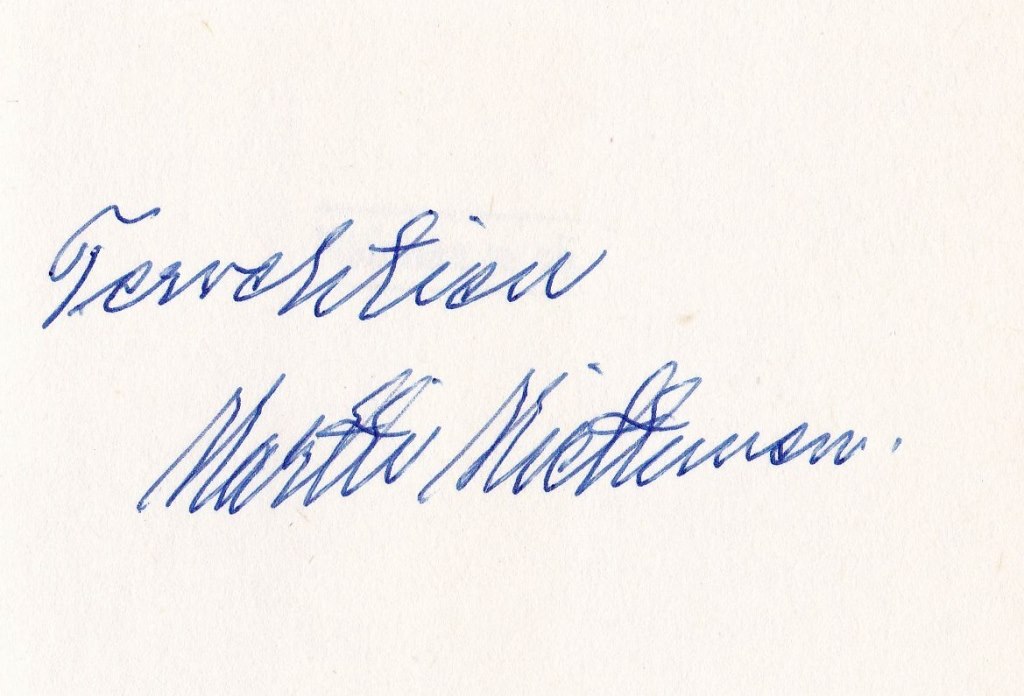 Tervehtien
Martti Miettunen.